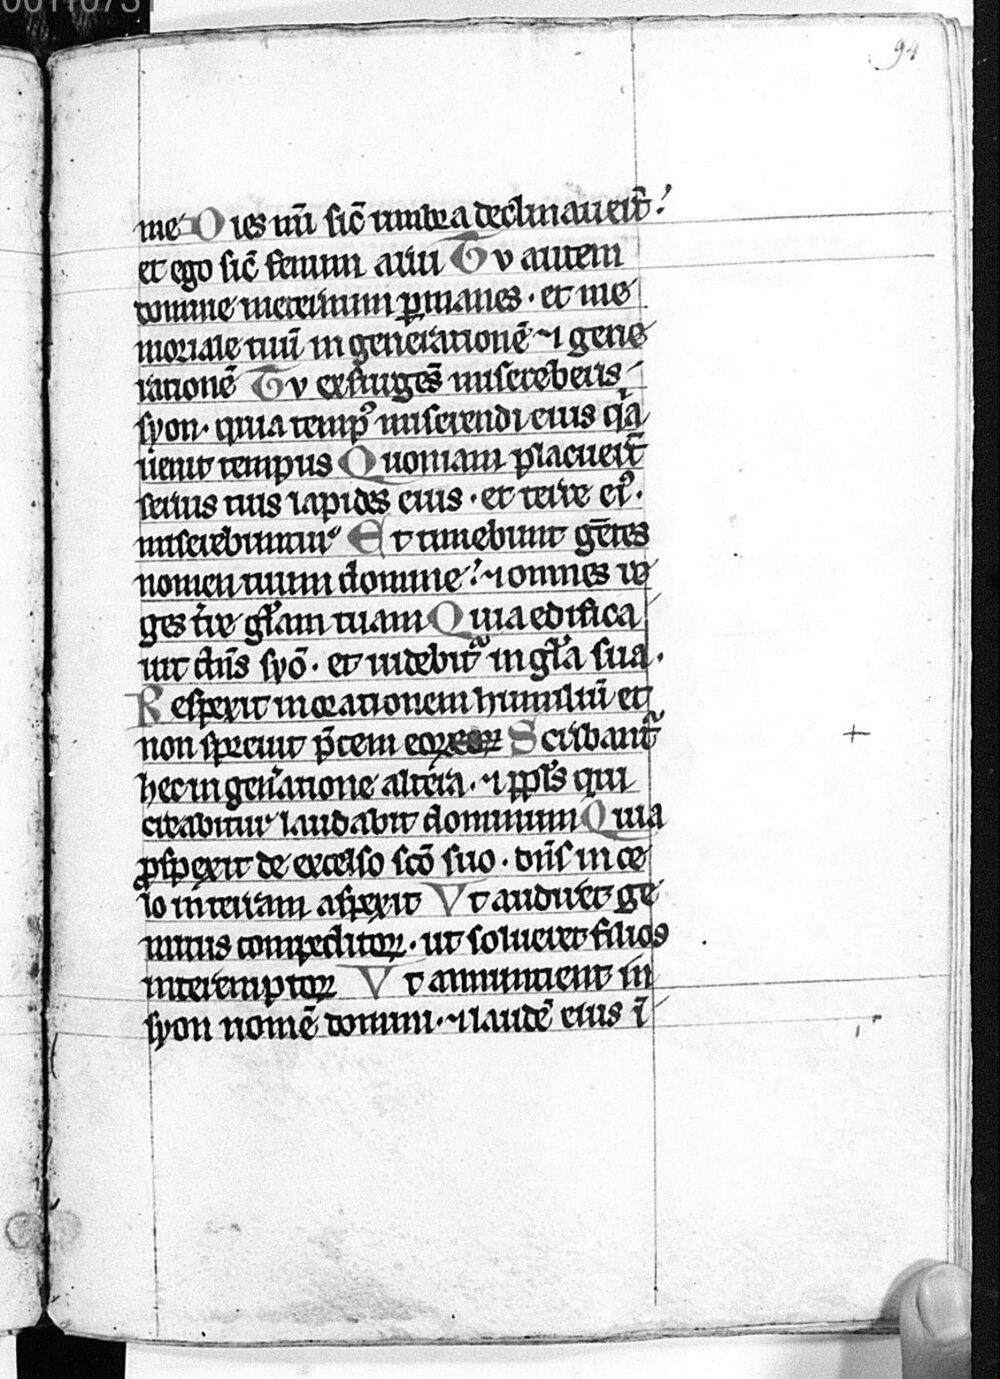 94
me Dies mĩ sic̃ umbra declinauer̃t:
et ego sic̃ fenum arui Tv autem
domine in eternum ꝑmanes · et me
moriale tuũ in generationẽ ⁊ gene
rationẽ Tv exsurgẽs misereberis
syon · quia tempꝰ miserendi eius qͥa
uenit tempus Quoniam placuer̃t
seruis tuis lapides eius · et terre eiꝰ ·
miserebuntur Et timebunt gẽtes
nomen tuum domine: ⁊ omnes re
ges t̃re gl̃am tuam Quia edifica
uit dñs syõ · et uidebitᷣ in gl̃a sua ·
Respexit in orationem humiliũ et
non spreuit p̃cem eoꝝ Scribantᷣ
hec in gen̾atione altera · ⁊ ppl̃s qui
creabitur laudabit dominum Quia
ꝓspexit de excelso scõ suo · dñs in ce
lo in terram aspexit Vt audiret ge
mitus compeditoꝝ · ut solueret filios
interemptoꝝ Vt annuntient in
syon nomẽ domini · ⁊ laudẽ eius ĩ